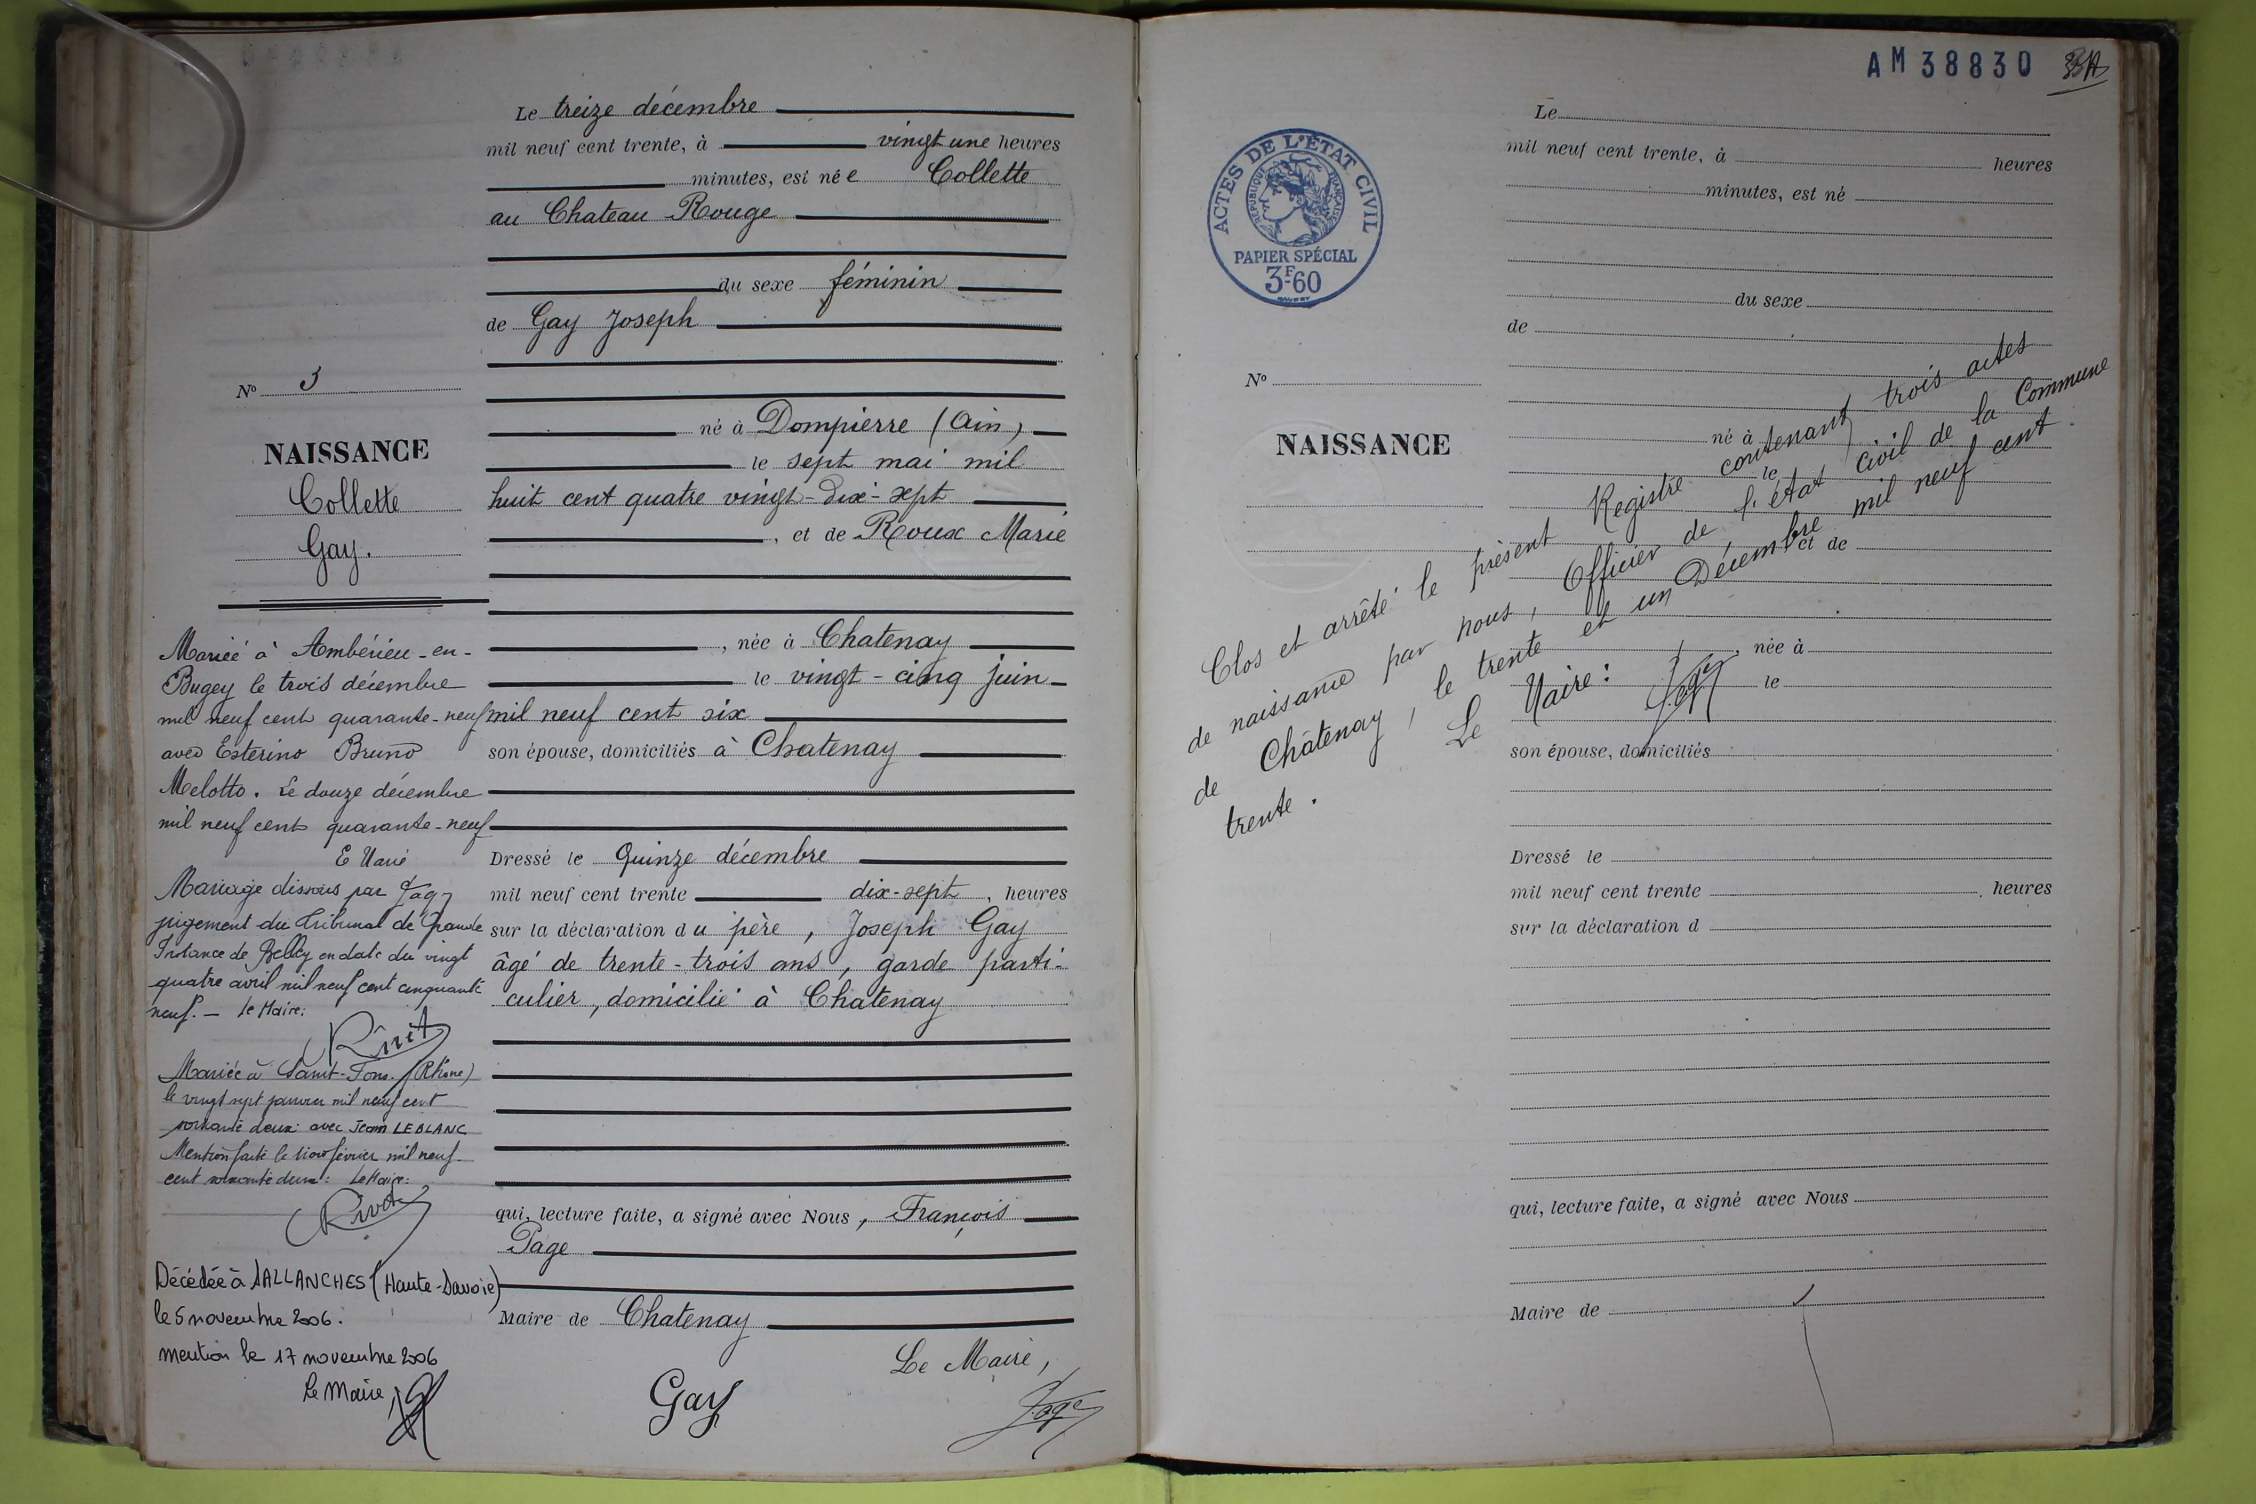 Le treize décembre
mil neuf cent trente, à vingt une heures
minutes, est née Collette
au Chateau Rouge
du sexe féminin
de Gay Joseph
né à Dompierre (Ain)
le sept mai mil
huit cent quatre vingt-dix-sept
, et de Roux Marie
, née à Chatenay
le vingt-cinq juin
mil neuf cent six
son épouse, domiciliés à Chatenay
Dressé le Quinze décembre
mil neuf cent trente dix-sept, heures
sur la déclaration du père, Joseph Gay
âgé de trente-trois ans, garde parti-
culier, domicilié à Chatenay
qui, lecture faite, a signé avec Nous, François
Page
Maire de Chatenay
Le Maire,
Gay
Page
No 3
NAISSANCE
Collette
Gay.
Mariée à Ambérieu-en-
Bugey le trois décembre
mil neuf cent quarante-neuf
avec Esterino Bruno
Melotto. Le douze décembre
mil neuf cent quarante-neuf
Page
Mariage dissous par
jugement du Tribunal de Grande
Instance de Belley en date du vingt
quatre avril mil neuf cent cinquante
neuf. — Le Maire:
Mariée à Saint-Fons (Rhône)
le vingt sept janvier mil neuf cent
soixante deux avec Jean LEBLANC
Mention faite le février mil neuf
cent soixante deux: Le Maire:
Décédée à SALLANCHES (Haute-Savoie)
le 5 novembre 2006.
mention le 17 novembre 2006
Le Maire,
AM 38830
ACTES DE L'ÉTAT CIVIL
RÉPUBLIQUE FRANÇAISE
PAPIER SPÉCIAL
3F60
Le
mil neuf cent trente, à heures
minutes, est né
du sexe
de
No
NAISSANCE
né à
le
et de
, née à
le
son épouse, domiciliés
Dressé le
mil neuf cent trente , heures
sur la déclaration d
qui, lecture faite, a signé avec Nous
Maire de
Clos et arrêté le présent Registre contenant trois actes
de naissance par nous, Officier de l'état civil de la Commune
de Châtenay, le trente et un Décembre mil neuf cent
trente.
Le Maire:
Page